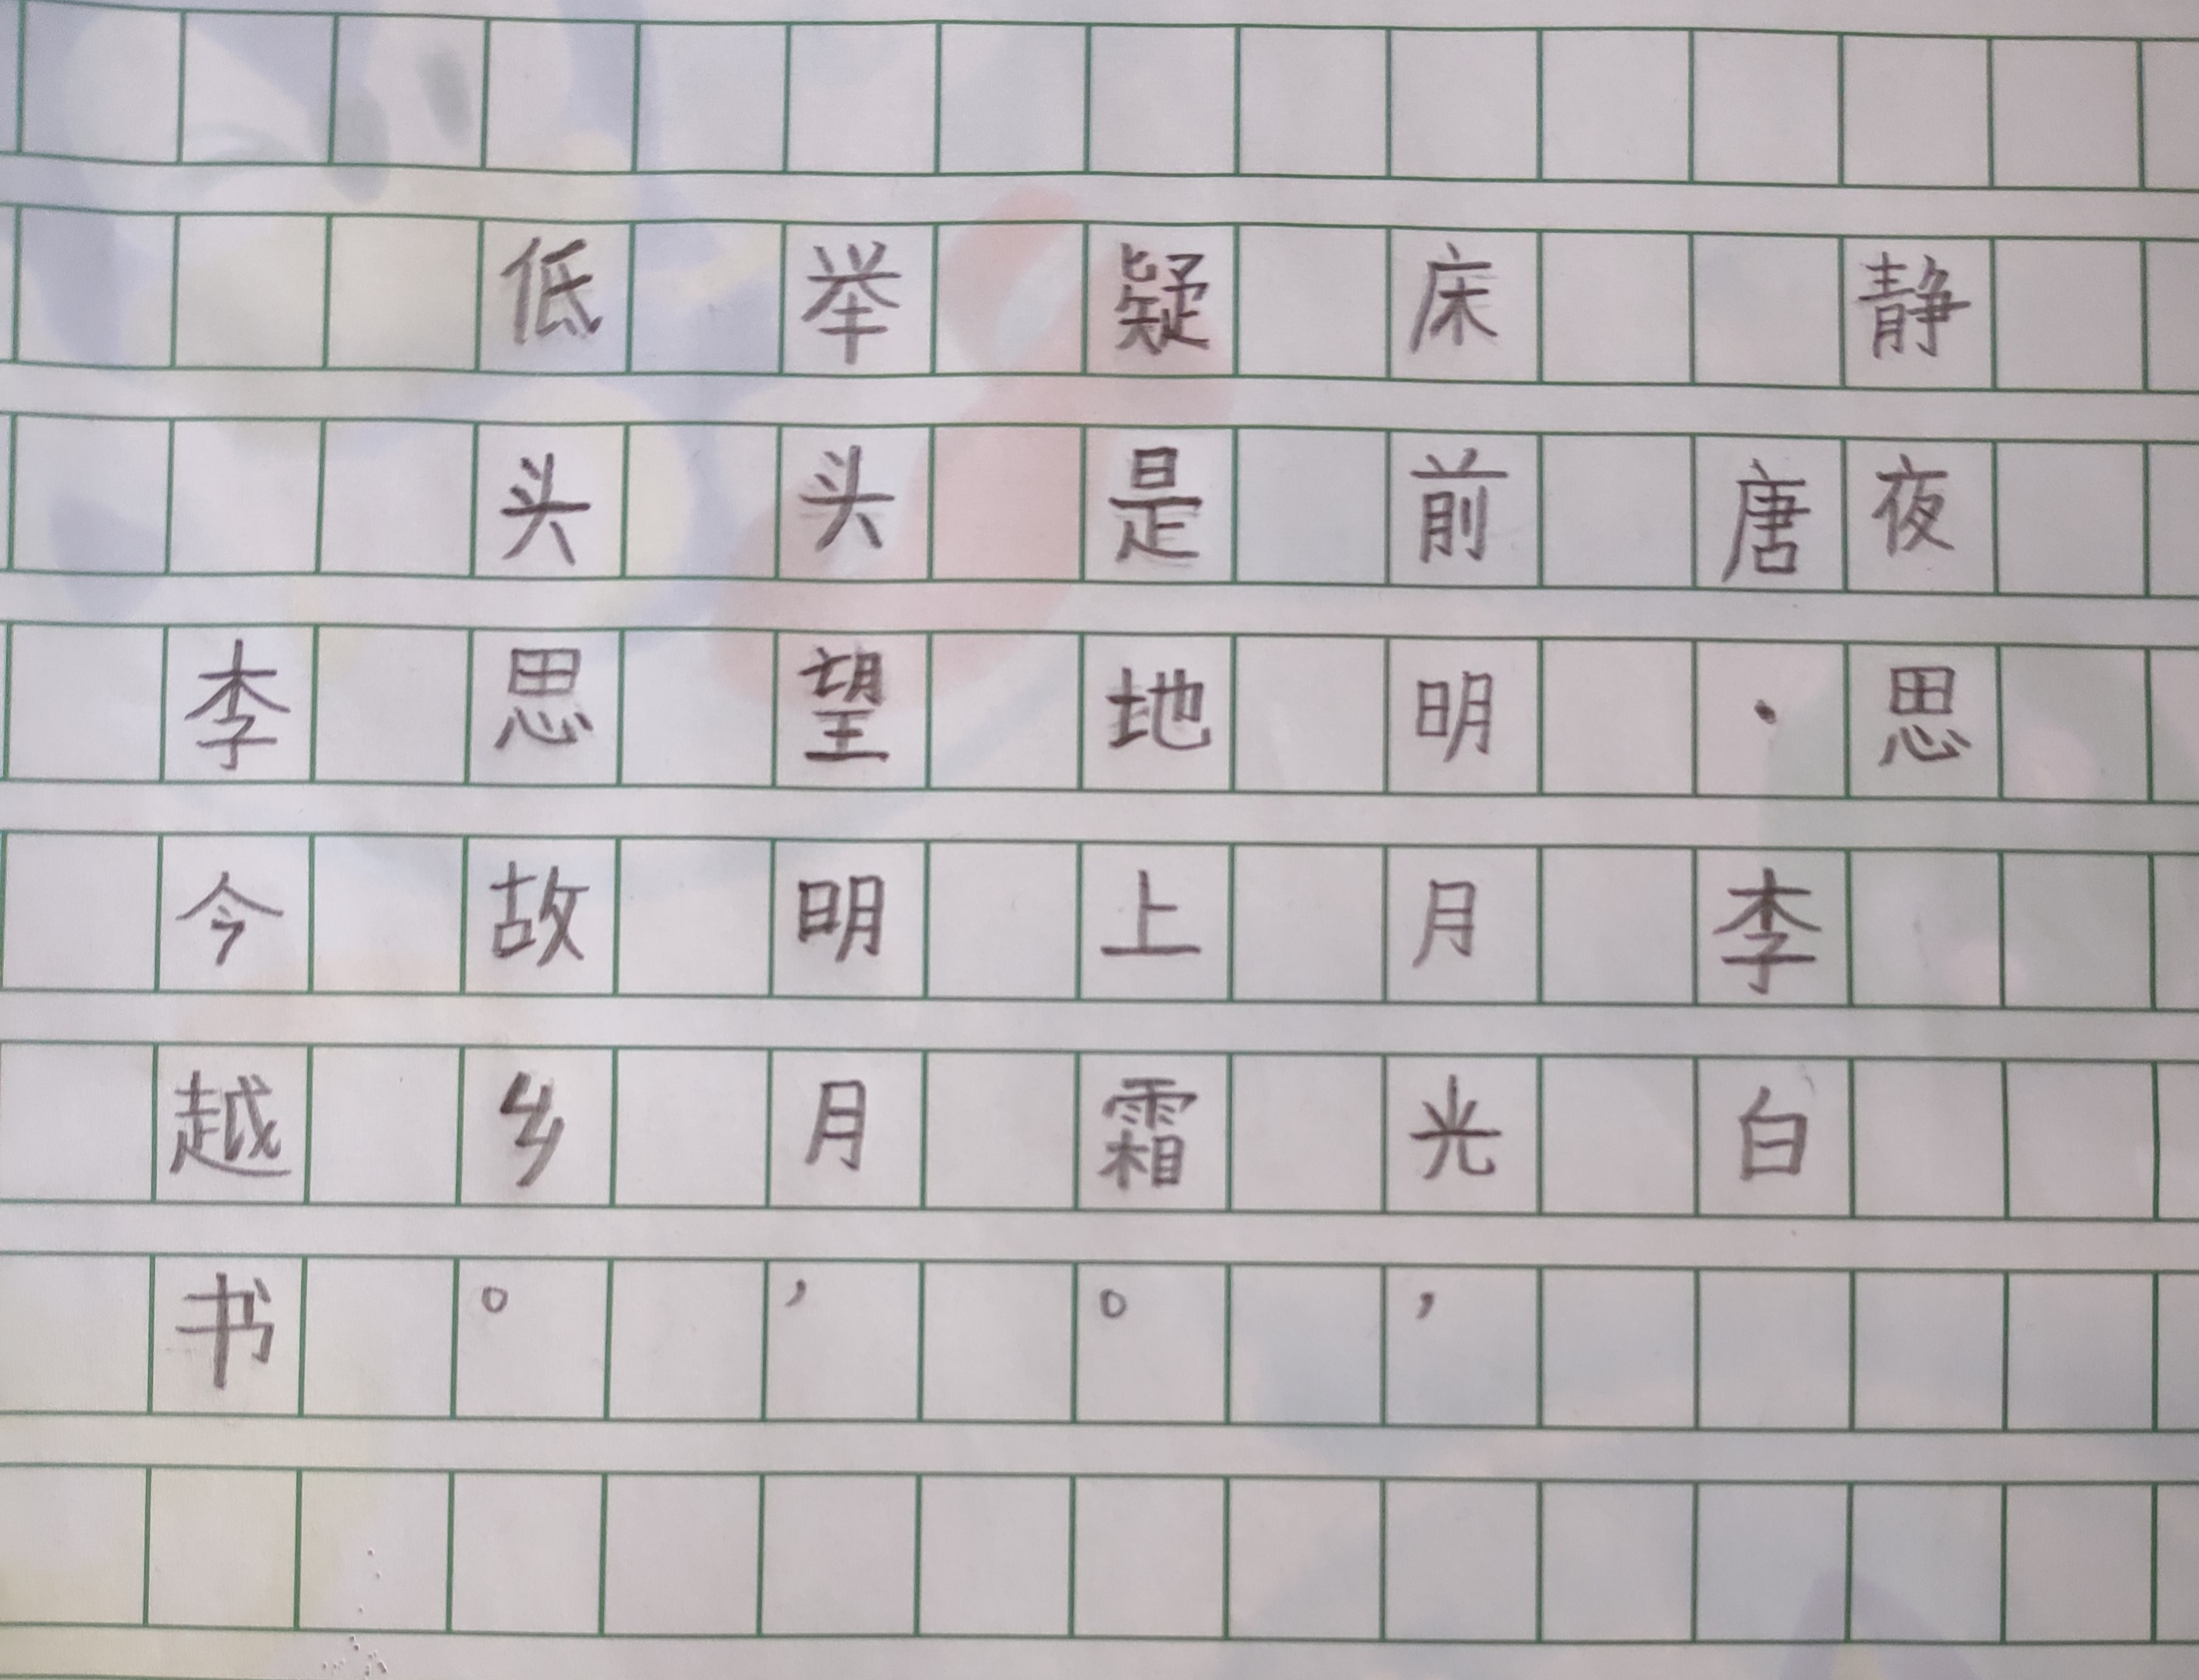 静夜思
唐·李白
床前明月光，
疑是地上霜。
举头望明月，
低头思故乡。
李今越书